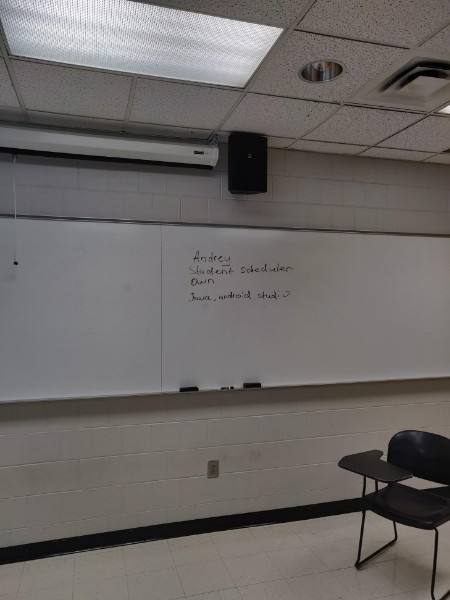 Andrey
Student scheduler
Own
Java, android studio